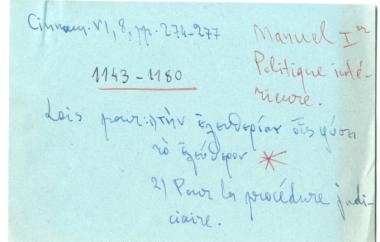 Cinnam. VI, 8, pp. 274-277
Manuel Ier
Politique inté-
rieure.
1143 - 1180
Lois pour: 1) τὴν ἐλευθερίαν τοῖς φύσει
τὸ ἐλεύθερον *
2) Pour la procédure judi-
ciaire.